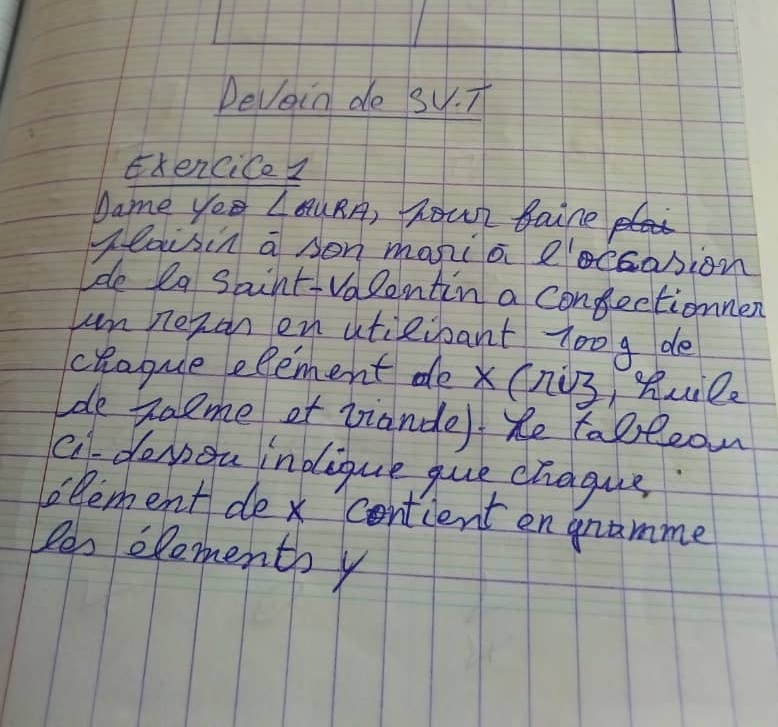 Devoir de SV.T
Exercice 1
Dame Yeo LAURA, pour faire plai
plaisir à son mari à l'occasion
de la Saint-Valentin a confectionner
un repas en utilisant 100g de
chaque elément de x (riz, huile
de palme et viande). Le tableau
ci-dessou indique que chaque
élément de x contient en gramme
les éléments y